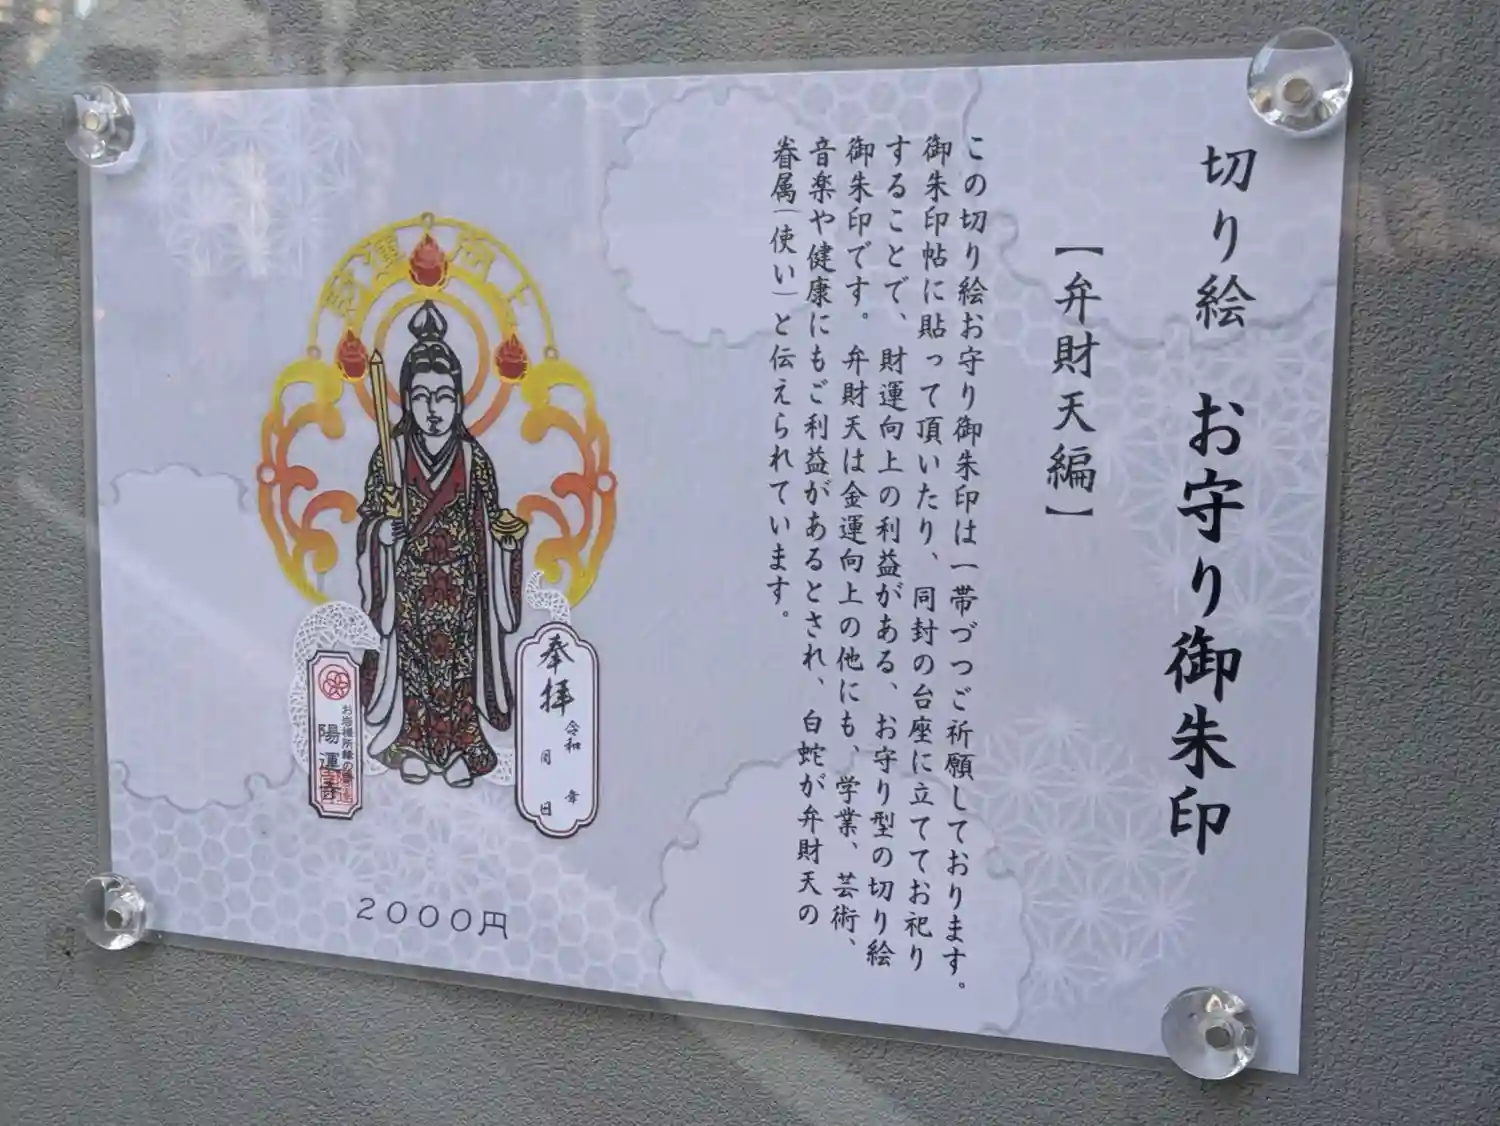 切り絵 お守り御朱印
【弁財天編】
この切り絵お守り御朱印は一帯づつご祈願しております。
御朱印帖に貼って頂いたり、同封の台座に立ててお祀り
することで、財運向上の利益がある、お守り型の切り絵
御朱印です。弁財天は金運向上の他にも、学業、芸術、
音楽や健康にもご利益があるとされ、白蛇が弁財天の
眷属(使い)と伝えられています。
財運向上
奉拝
令和 年
月 日
陽運寺
2000円